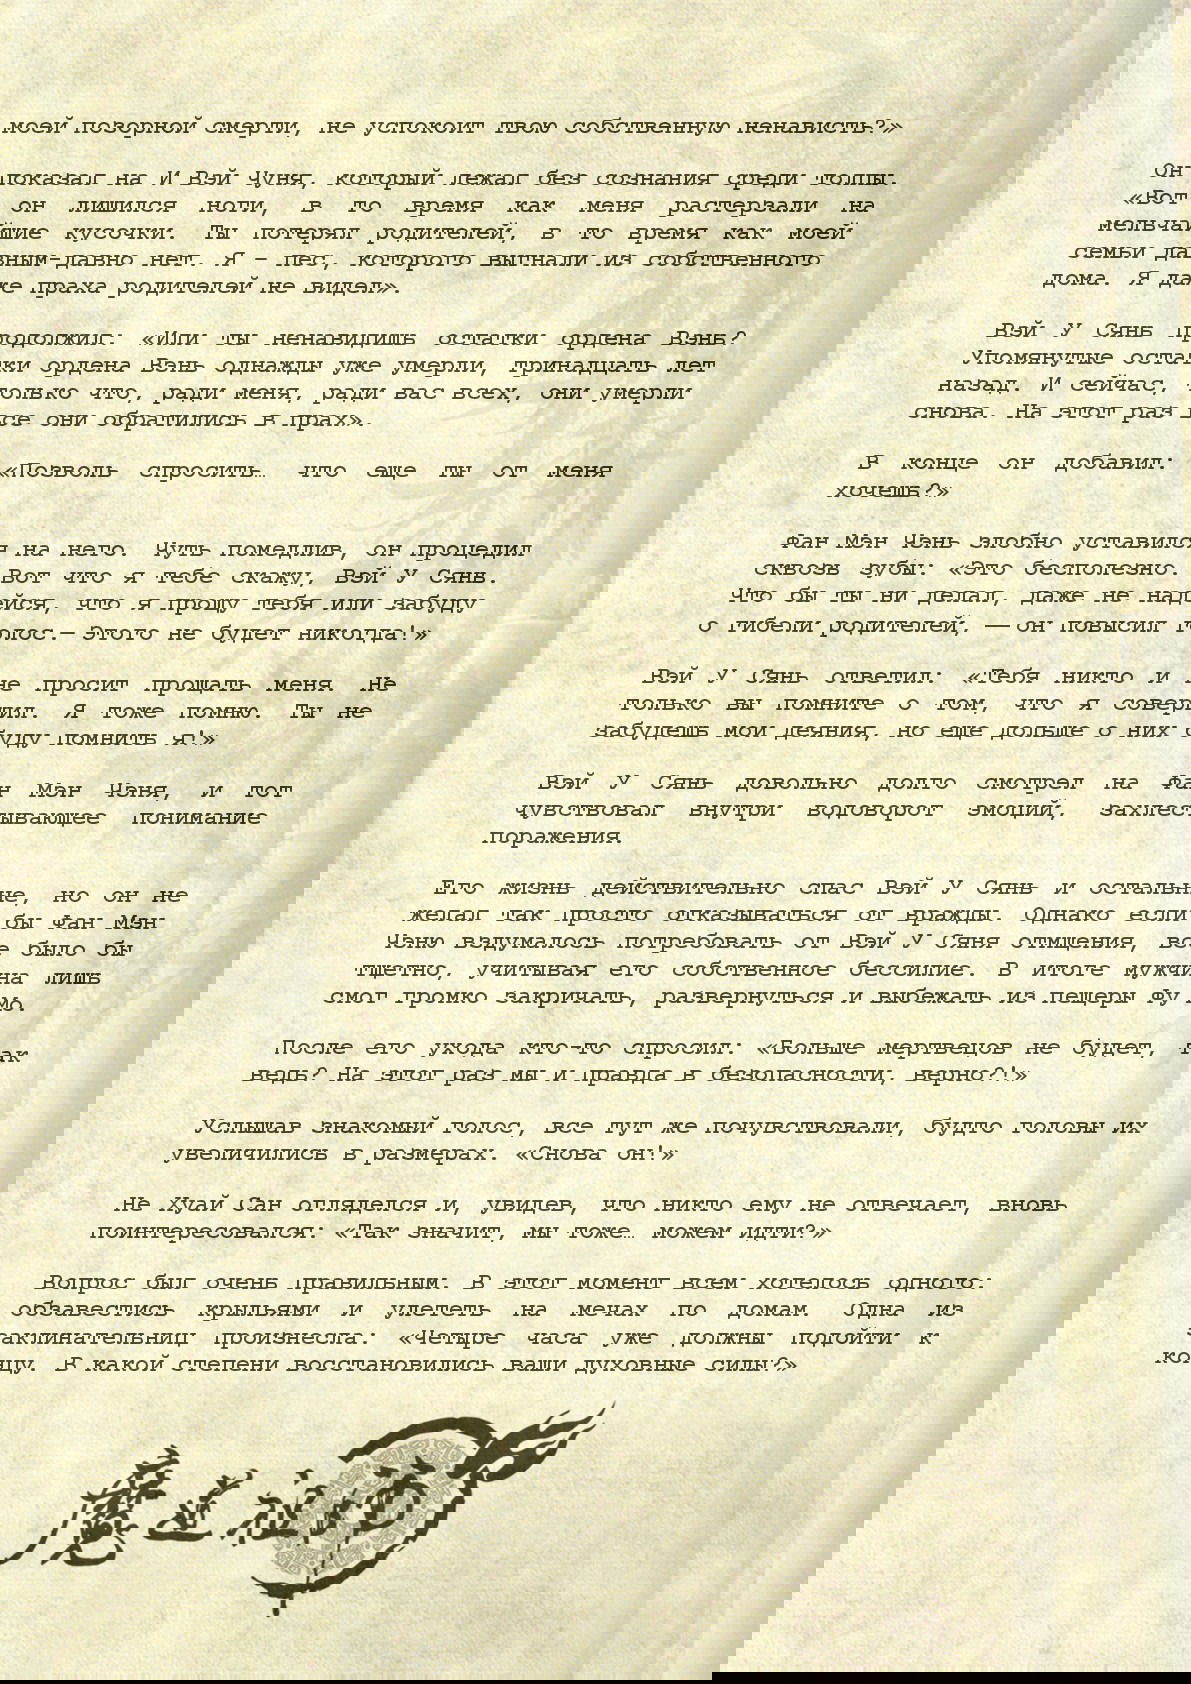 моей позорной смерти, не успокоит твою собственную ненависть?»
Он показал на И Вэй Чуня, который лежал без сознания среди толпы.
«Вот он лишился ноги, в то время как меня растерзали на
мельчайшие кусочки. Ты потерял родителей, в то время как моей
семьи давным-давно нет. Я – пес, которого выгнали из собственного
дома. Я даже праха родителей не видел».
Вэй У Сянь продолжил: «Или ты ненавидишь остатки ордена Вэнь?
Упомянутые остатки ордена Вэнь однажды уже умерли, тринадцать лет
назад. И сейчас, только что, ради меня, ради вас всех, они умерли
снова. На этот раз все они обратились в прах».
В конце он добавил: «Позволь спросить… что еще ты от меня
хочешь?»
Фан Мэн Чэнь злобно уставился на него. Чуть помедлив, он процедил
сквозь зубы: «Это бесполезно. Вот что я тебе скажу, Вэй У Сянь.
Что бы ты ни делал, даже не надейся, что я прощу тебя или забуду
о гибели родителей, — он повысил голос.— Этого не будет никогда!»
Вэй У Сянь ответил: «Тебя никто и не просит прощать меня. Не
только вы помните о том, что я совершил. Я тоже помню. Ты не
забудешь мои деяния, но еще дольше о них буду помнить я!»
Вэй У Сянь довольно долго смотрел на Фан Мэн Чэня, и тот
чувствовал внутри водоворот эмоций, захлестывающее понимание
поражения.
Его жизнь действительно спас Вэй У Сянь и остальные, но он не
желал так просто отказываться от вражды. Однако если бы Фан Мэн
Чэню вздумалось потребовать от Вэй У Сяня отмщения, все было бы
тщетно, учитывая его собственное бессилие. В итоге мужчина лишь
смог громко закричать, развернуться и выбежать из пещеры Фу Мо.
После его ухода кто-то спросил: «Больше мертвецов не будет, так
ведь? На этот раз мы и правда в безопасности, верно?!»
Услышав знакомый голос, все тут же почувствовали, будто головы их
увеличились в размерах. «Снова он!»
Не Хуай Сан огляделся и, увидев, что никто ему не отвечает, вновь
поинтересовался: «Так значит, мы тоже… можем идти?»
Вопрос был очень правильным. В этот момент всем хотелось одного:
обзавестись крыльями и улететь на мечах по домам. Одна из
заклинательниц произнесла: «Четыре часа уже должны подойти к
концу. В какой степени восстановились ваши духовные силы?»
魔道祖师